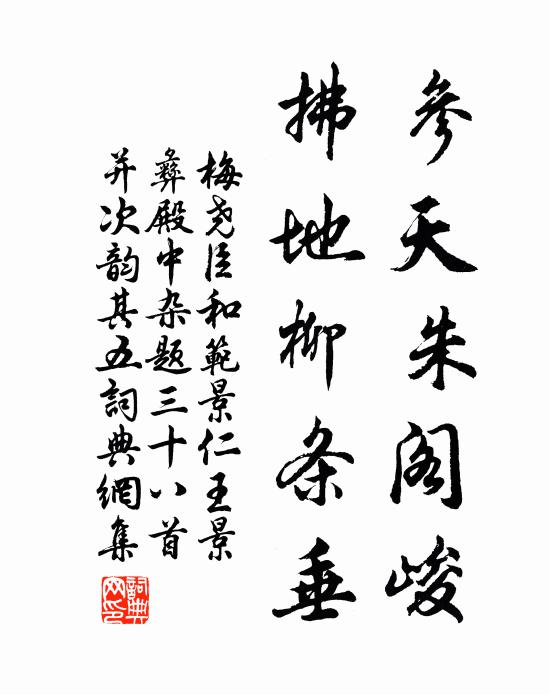 參天朱阁峻
拂地柳条垂
梅尧臣和範景仁王景
彝殿中杂题三十八首
并次韵其五詞典網集
詞典網印